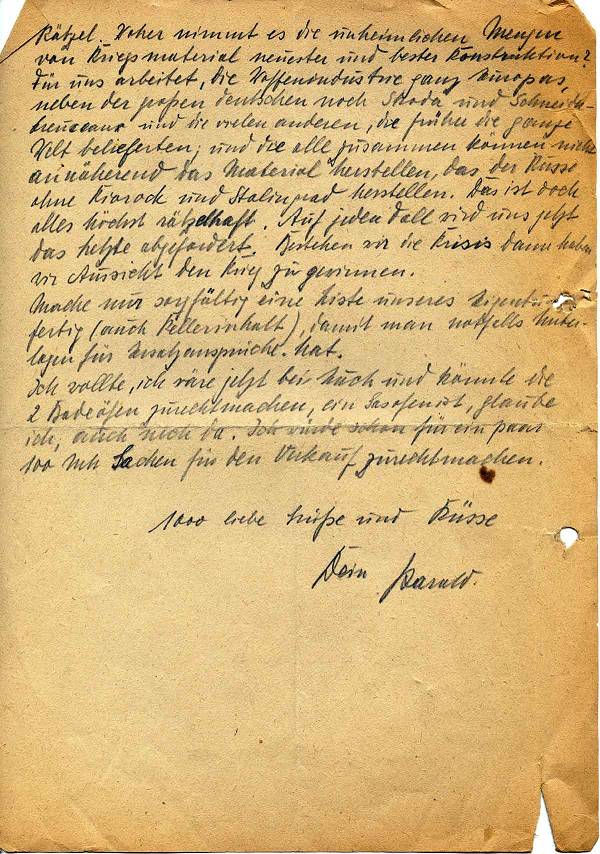 Rätzel. Woher nimmt es die unheimlichen Mengen
von Kriegsmaterial neuester und bester Konstruktion?
Für uns arbeitet, die Waffenindustrie ganz Europas,
neben der großen deutschen noch Skoda und Schneider-
kreuceaux und die vielen anderen, die früher die ganze
Welt belieferten; und die alle zusammen können nicht
annähernd das Material herstellen, das der Russe
ohne und Stalingrad herstellen. Das ist doch
alles höchst rätzelhaft. Auf jeden Fall wird uns jetzt
das letzte abgefordert. Bestehen wir die Krisis dann haben
wir Aussicht den Krieg zu gewinnen.
Mache nur sorgfältig eine Liste unseres Eigentums
fertig (auch Kellerinhalt), damit man notfalls Unter-
lagen für Ersatzansprüche. hat.
Ich wollte, ich wäre jetzt bei Euch und könnte die
2 Badeöfen zurechtmachen, ein Gasofen ist, glaube
ich, auch noch da. Ich würde schon für ein paar
100 Mk Sachen für den Verkauf zurechtmachen.
1000 liebe Grüße und Küsse
Dein Harald.